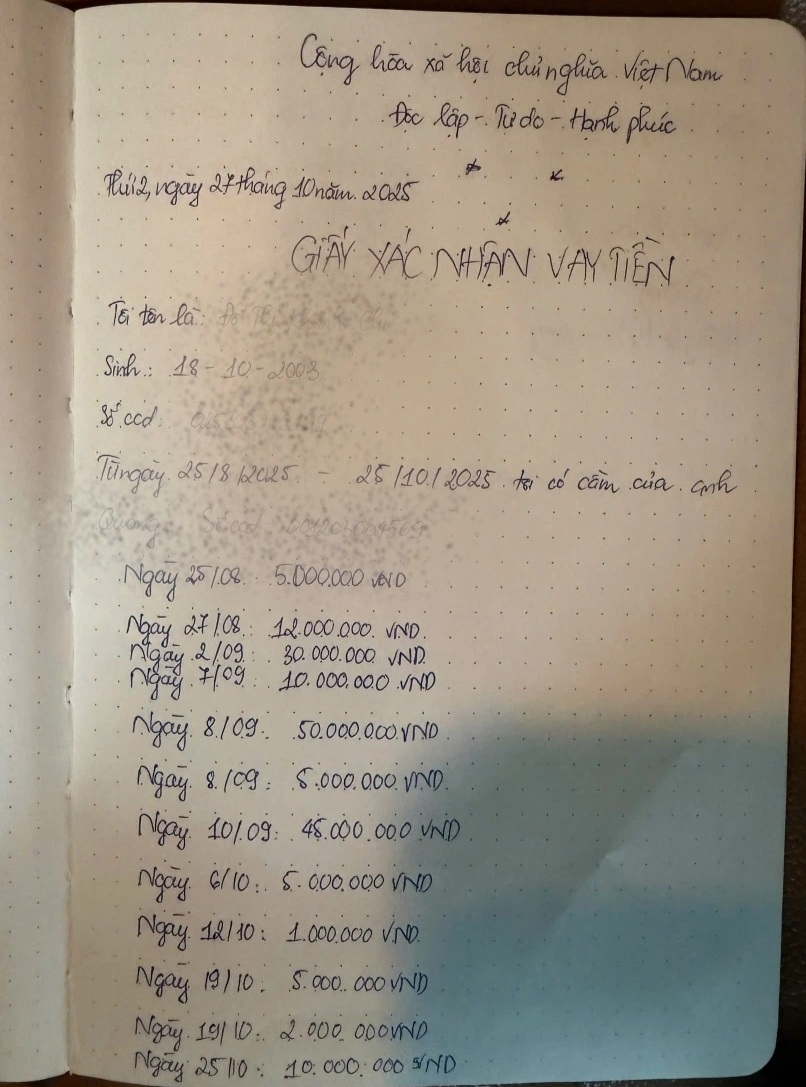 Cộng hòa xã hội chủ nghĩa Việt Nam
Độc lập - Tự do - Hạnh phúc
Thứ 2, ngày 27 tháng 10 năm 2025
GIẤY XÁC NHẬN VAY TIỀN
Tôi tên là:
Sinh: 18-10-2003
Số ccd:
Từ ngày 25/8/2025 - 25/10/2025 tôi có cầm của anh
Quang Số ccd
Ngày 25/08: 5.000.000 VND
Ngày 27/08: 12.000.000 VND
Ngày 2/09: 30.000.000 VND
Ngày 7/09: 10.000.000 VND
Ngày 8/09: 50.000.000 VND
Ngày 8/09: 5.000.000 VND
Ngày 10/09: 45.000.000 VND
Ngày 6/10: 5.000.000 VND
Ngày 12/10: 1.000.000 VND
Ngày 19/10: 5.000.000 VND
Ngày 19/10: 2.000.000 VND
Ngày 25/10: 10.000.000 VND